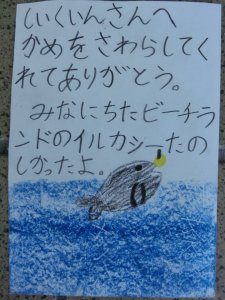 しいくいんさんへ
かめをさわらしてく
れてありがとう。
みなにちたビーチラ
ンドのイルカシーたの
しかったよ。